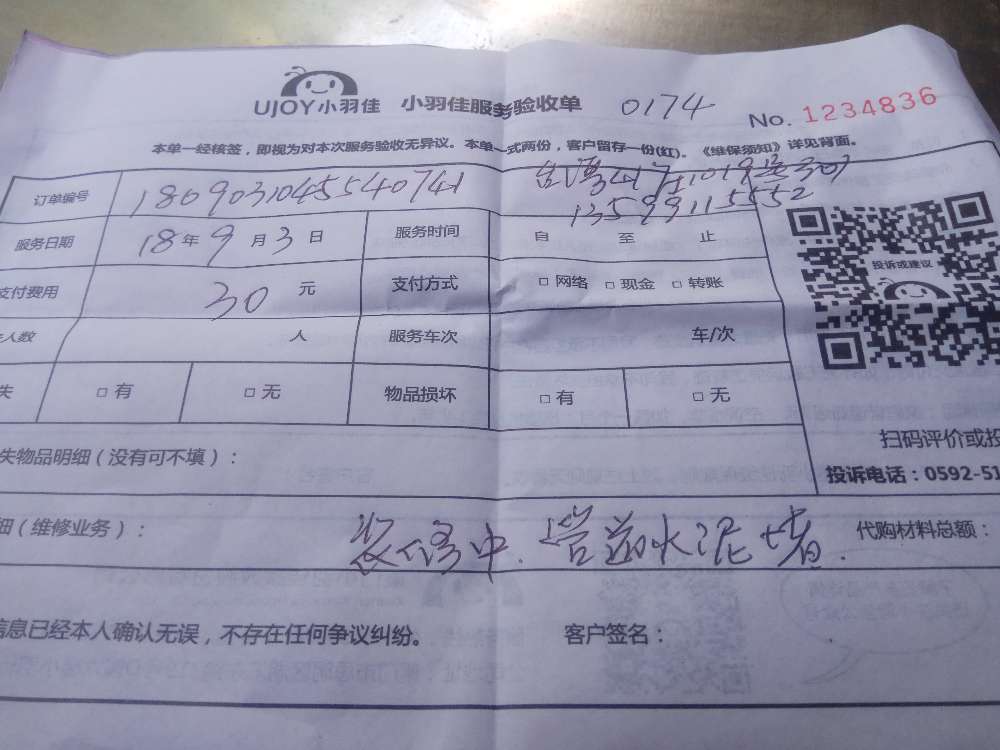 UJOY小羽佳 小羽佳服务验收单 0174 No. 1234836
本单一经核签，即视为对本次服务验收无异议。本单一式两份，客户留存一份(红)。《维保须知》详见背面。
订单编号 1809031045540741
13599115552
服务日期 18年9月3日 服务时间 自 至 止
投诉或建议
支付费用 30元 支付方式 □网络 □现金 □转账
人数 人 服务车次 车/次
失 □有 □无 物品损坏 □有 □无
扫码评价或投
失物品明细（没有可不填）：
投诉电话：0592-51
细（维修业务）： 装修中.管道水泥堵. 代购材料总额：
信息已经本人确认无误，不存在任何争议纠纷。 客户签名：